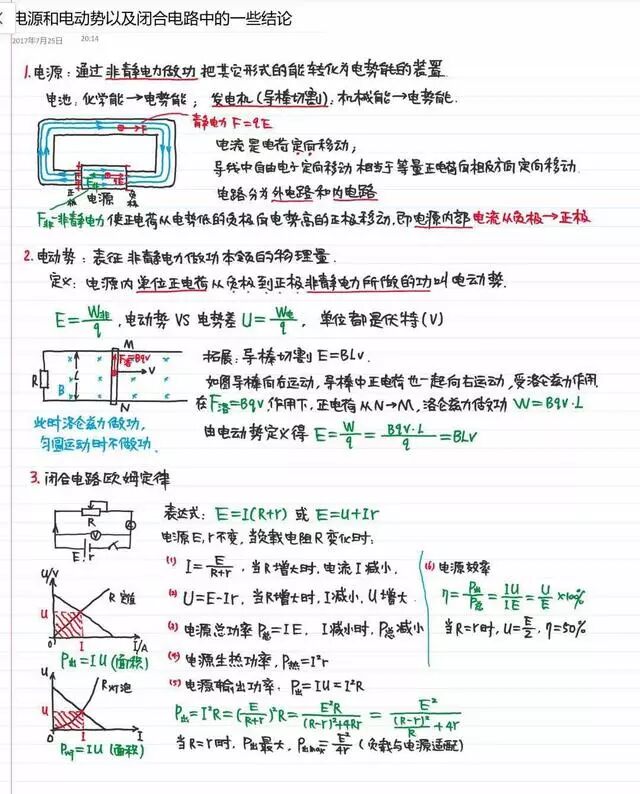 电源和电动势以及闭合电路中的一些结论
2017年7月25日 20:14
1. 电源：通过非静电力做功把其它形式的能转化为电势能的装置.
电池：化学能→电势能； 发电机(导棒切割)：机械能→电势能.
静电力 F=qE
电流是电荷定向移动；
导线中自由电子定向移动相当于等量正电荷向相反方向定向移动.
电路分为外电路和内电路
正极 电源 负极
F非-非静电力 使正电荷从电势低的负极向电势高的正极移动，即电源内部电流从负极→正极
2. 电动势：表征非静电力做功本领的物理量.
定义：电源内单位正电荷从负极到正极非静电力所做的功叫电动势.
E=W非/q , 电动势 VS 电势差 U=W电/q , 单位都是伏特(V)
M
R L B F洛=Bqv V
N
拓展：导棒切割 E=BLv.
如图导棒向右运动，导棒中正电荷也一起向右运动，受洛仑兹力作用
在F洛=Bqv作用下，正电荷从N→M，洛仑兹力做功 W=Bqv·L
此时洛仑兹力做功，
匀圆运动时不做功.
由电动势定义得 E=W/q=Bqv·L/q=BLv
3. 闭合电路欧姆定律
R A V E r
表达式：E=I(R+r) 或 E=U+Ir
电源E,r不变，当负载电阻R变化时：
(1) I=E/(R+r) , 当R增大时，电流I减小.
(2) U=E-Ir, 当R增大时，I减小，U增大.
(3) 电源总功率 P总=IE, I减小时，P总减小
(4) 电源生热功率，P热=I²r
(5) 电源输出功率. P出=IU=I²R
P出=I²R=(E/(R+r))²R=E²R/((R-r)²+4Rr)=E²/((R-r)²/R+4r)
当R=r时，P出最大，P出max=E²/4r (负载与电源适配)
(6) 电源效率
η=P出/P总=IU/IE=U/E×100%
当R=r时，U=E/2, η=50%
U/V R定值
U
0 I I/A
P出=IU(面积)
U R灯泡
U
0 I I
=IU(面积)